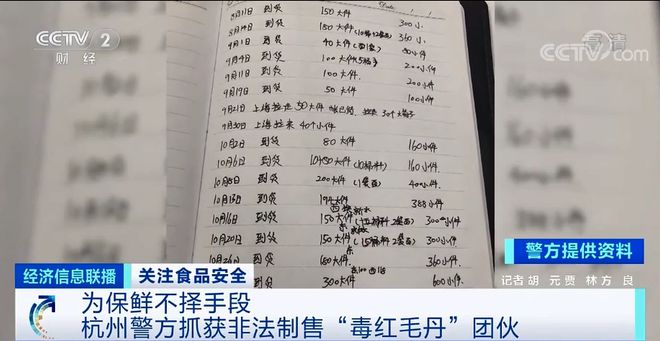 CCTV 2
财经
高清
CCTV.com
8月11日 到货 150大件 300小
8月14日 到货 180大件 360小
9月1日 到货 40大件
9月4日 到货 100大件 200小
9月11日 到货 100大件 200小件
9月19日 到货 50大件 100小件
9月21日 上海拉走 50大件
9月30日 上海拉来 40个小件
10月2日 到货 80大件 160小件
10月6日 到货 160小件
10月8日 到货 200大件 400小件
10月13日 到货 194大件 388小件
10月16日 到货 150大件 300小件
10月20日 到货 150大件 300小件
10月26日 到货 180大件 360小件
到货 300大件 600小件
警方提供资料
经济信息联播
关注食品安全
记者 胡 元 贾 林 方 良
为保鲜不择手段
杭州警方抓获非法制售“毒红毛丹”团伙